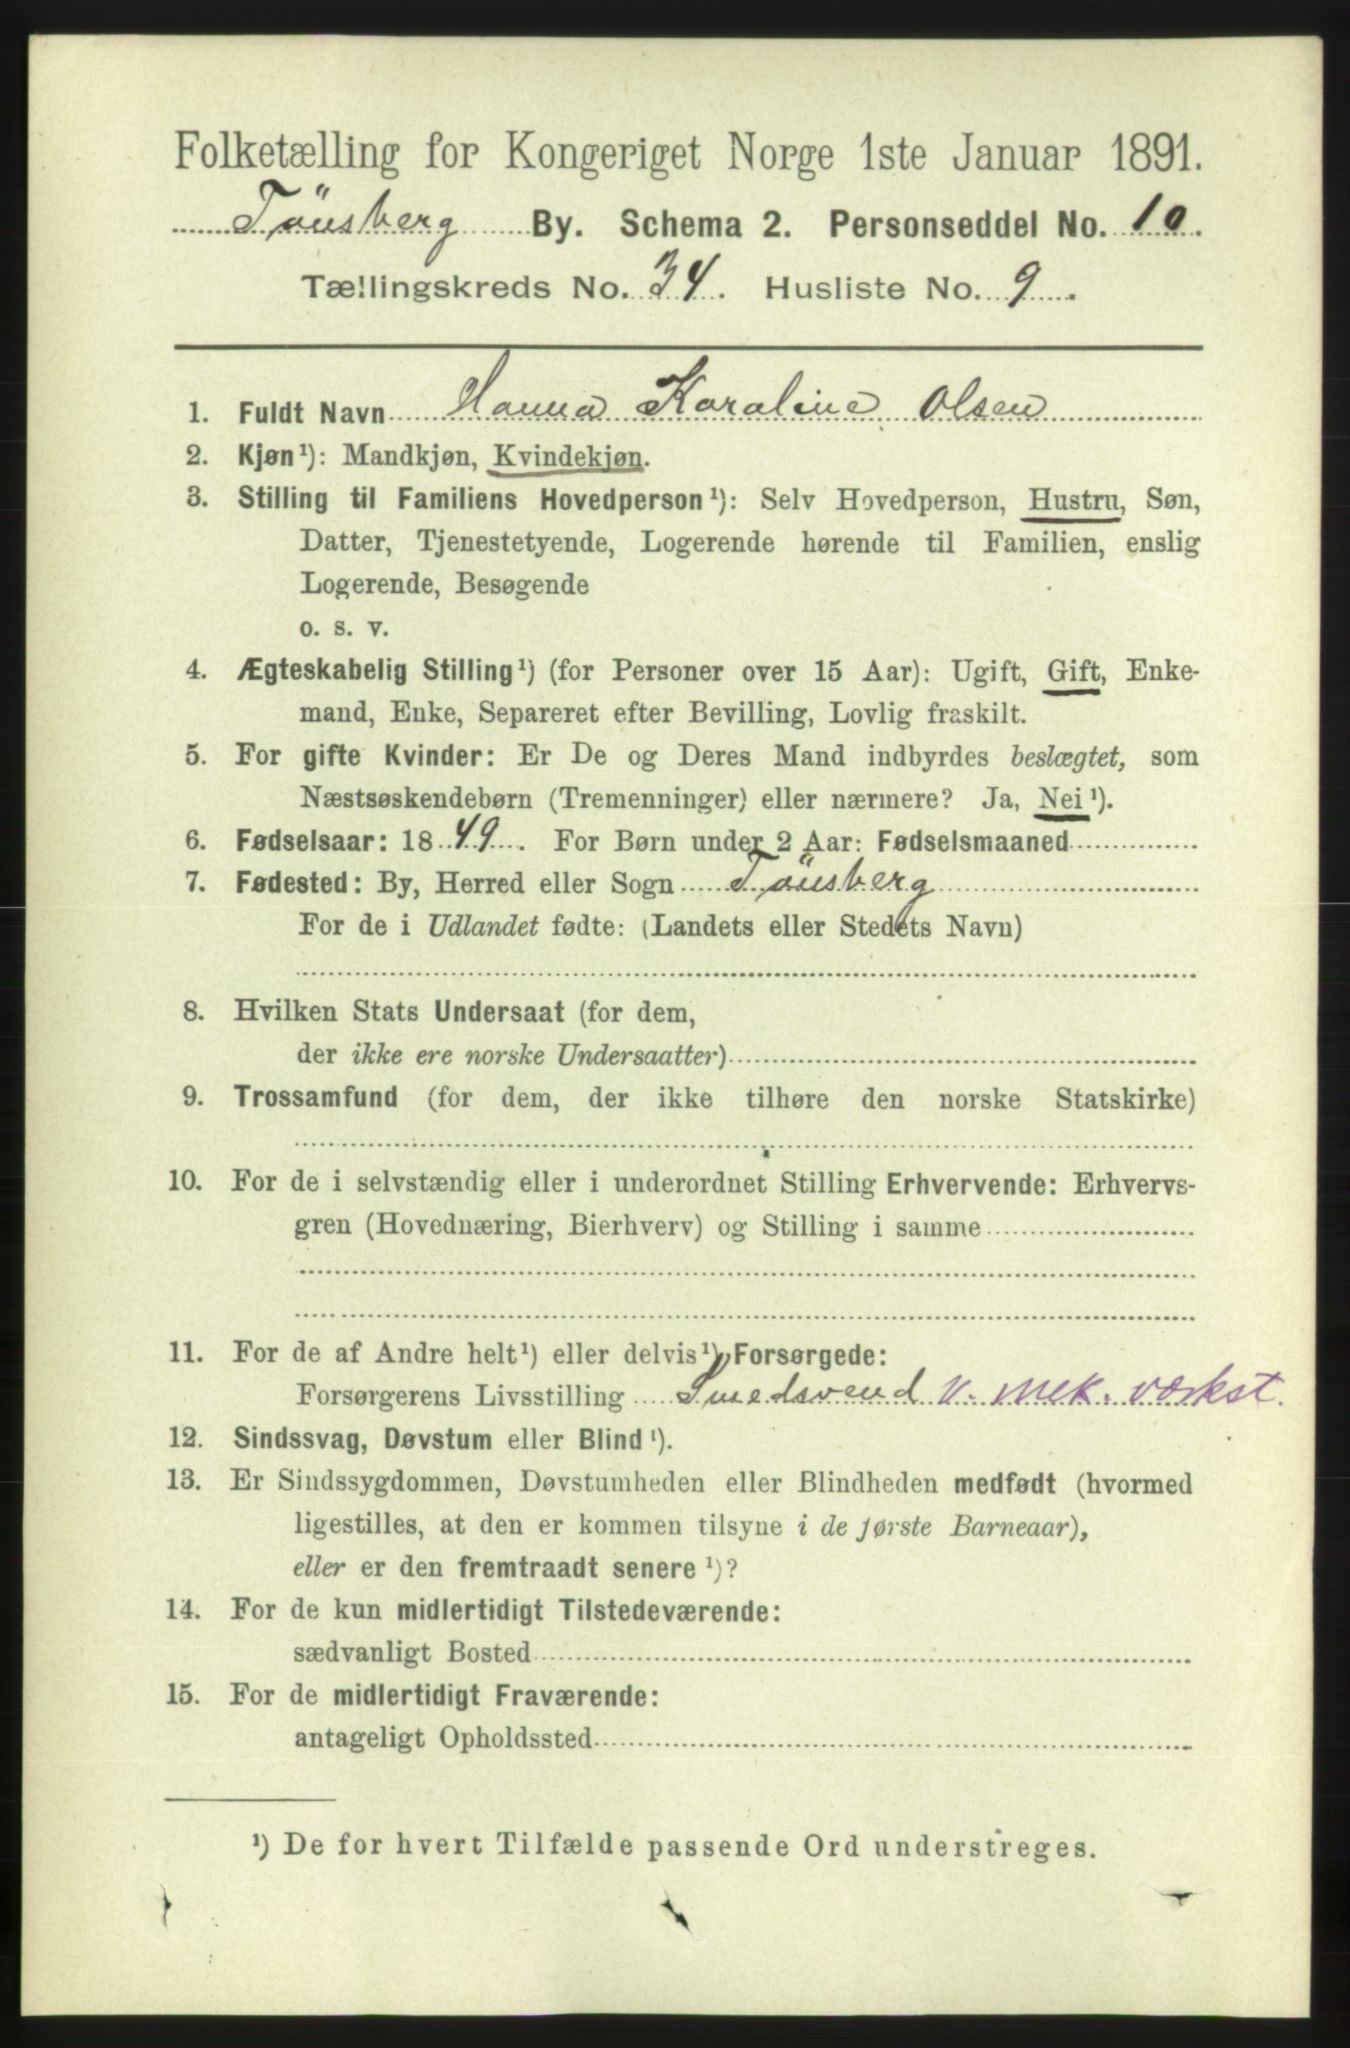 Folketælling for Kongeriget Norge 1ste Januar 1891.
Tönsberg By. Schema 2. Personseddel No. 10.
Tællingskreds No. 34. Husliste No. 9.
1. Fuldt Navn Hanna Karoline Olsen
2. Kjøn¹): Mandkjøn, Kvindekjøn.
3. Stilling til Familiens Hovedperson¹): Selv Hovedperson, Hustru, Søn,
Datter, Tjenestetyende, Logerende hørende til Familien, enslig
Logerende, Besøgende
o. s. v.
4. Ægteskabelig Stilling¹) (for Personer over 15 Aar): Ugift, Gift, Enke-
mand, Enke, Separeret efter Bevilling, Lovlig fraskilt.
5. For gifte Kvinder: Er De og Deres Mand indbyrdes beslægtet, som
Næstsøskendebørn (Tremenninger) eller nærmere? Ja, Nei¹).
6. Fødselsaar: 1849. For Børn under 2 Aar: Fødselsmaaned
7. Fødested: By, Herred eller Sogn Tönsberg
For de i Udlandet fødte: (Landets eller Stedets Navn)
8. Hvilken Stats Undersaat (for dem,
der ikke ere norske Undersaatter)
9. Trossamfund (for dem, der ikke tilhøre den norske Statskirke)
10. For de i selvstændig eller i underordnet Stilling Erhvervende: Erhvervs-
gren (Hovednæring, Bierhverv) og Stilling i samme
11. For de af Andre helt¹) eller delvis¹) Forsørgede:
Forsørgerens Livsstilling Smedsvend v. mek. værkst.
12. Sindssvag, Døvstum eller Blind¹).
13. Er Sindssygdommen, Døvstumheden eller Blindheden medfødt (hvormed
ligestilles, at den er kommen tilsyne i de første Barneaar),
eller er den fremtraadt senere¹)?
14. For de kun midlertidigt Tilstedeværende:
sædvanligt Bosted
15. For de midlertidigt Fraværende:
antageligt Opholdssted
¹) De for hvert Tilfælde passende Ord understreges.